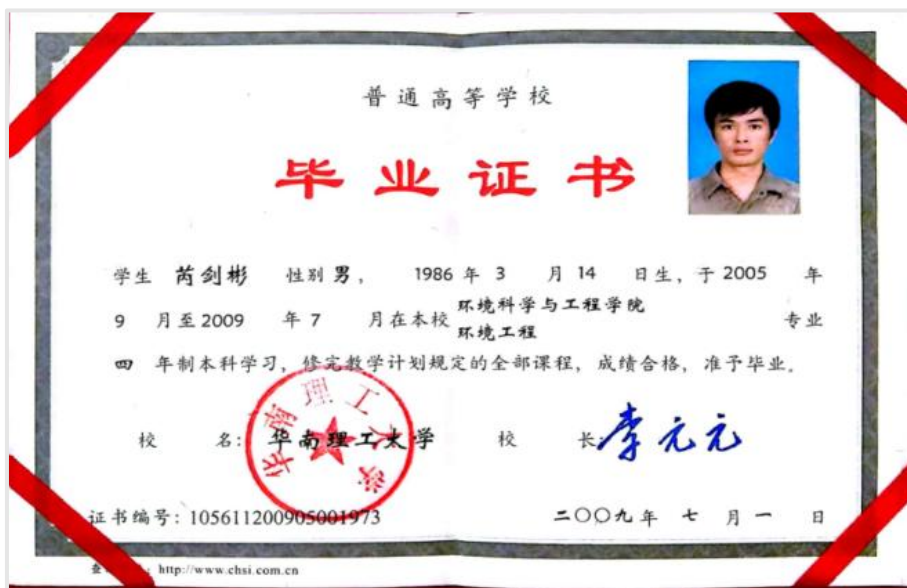 普通高等学校
毕业证书
学生 芮剑彬 性别 男， 1986 年 3 月 14 日生，于 2005 年
9 月至 2009 年 7 月在本校 环境科学与工程学院
环境工程 专业
四 年制本科学习，修完教学计划规定的全部课程，成绩合格，准予毕业。
华南理工大学
校 名：华南理工大学 校 长：李元元
证书编号：105611200905001973 二〇〇九年 七 月 一 日
http://www.chsi.com.cn